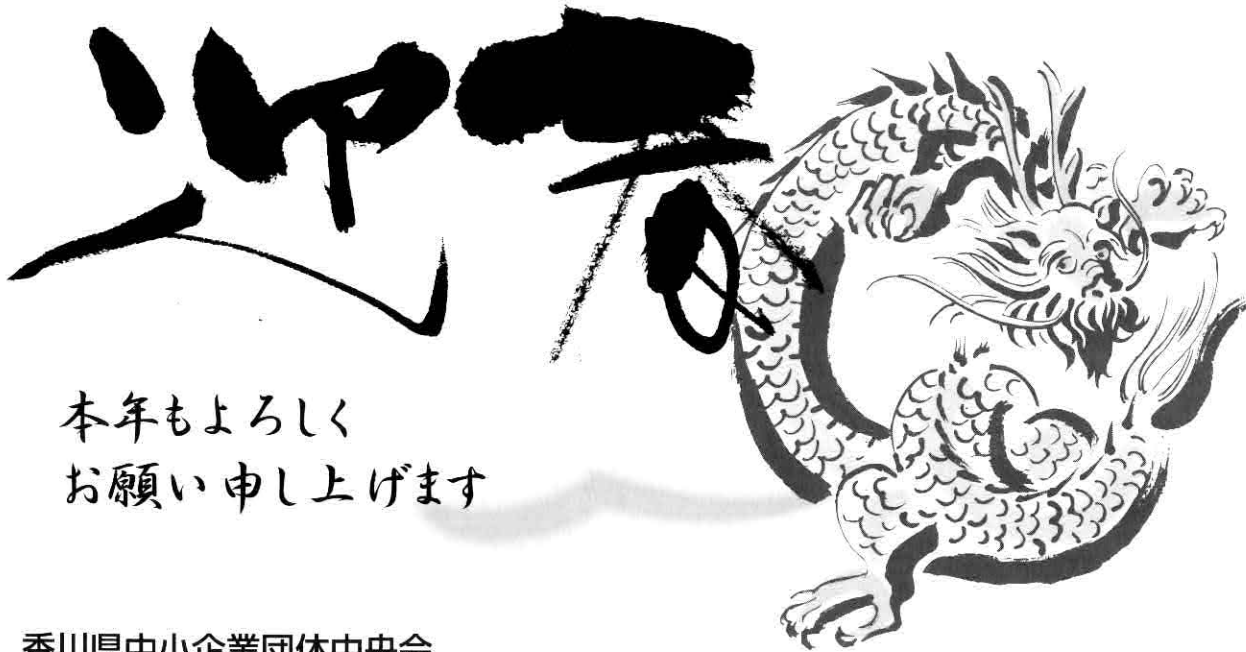 迎春
本年もよろしく
お願い申し上げます
香川県中小企業団体中央会